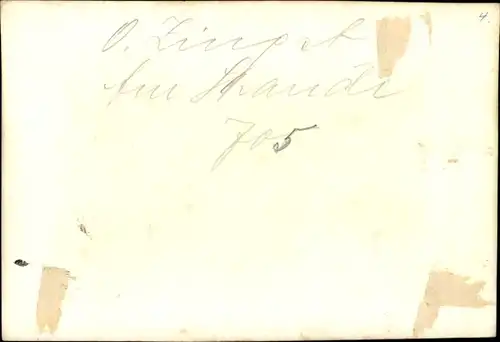 4.
O. Zingst
Am Strande
705